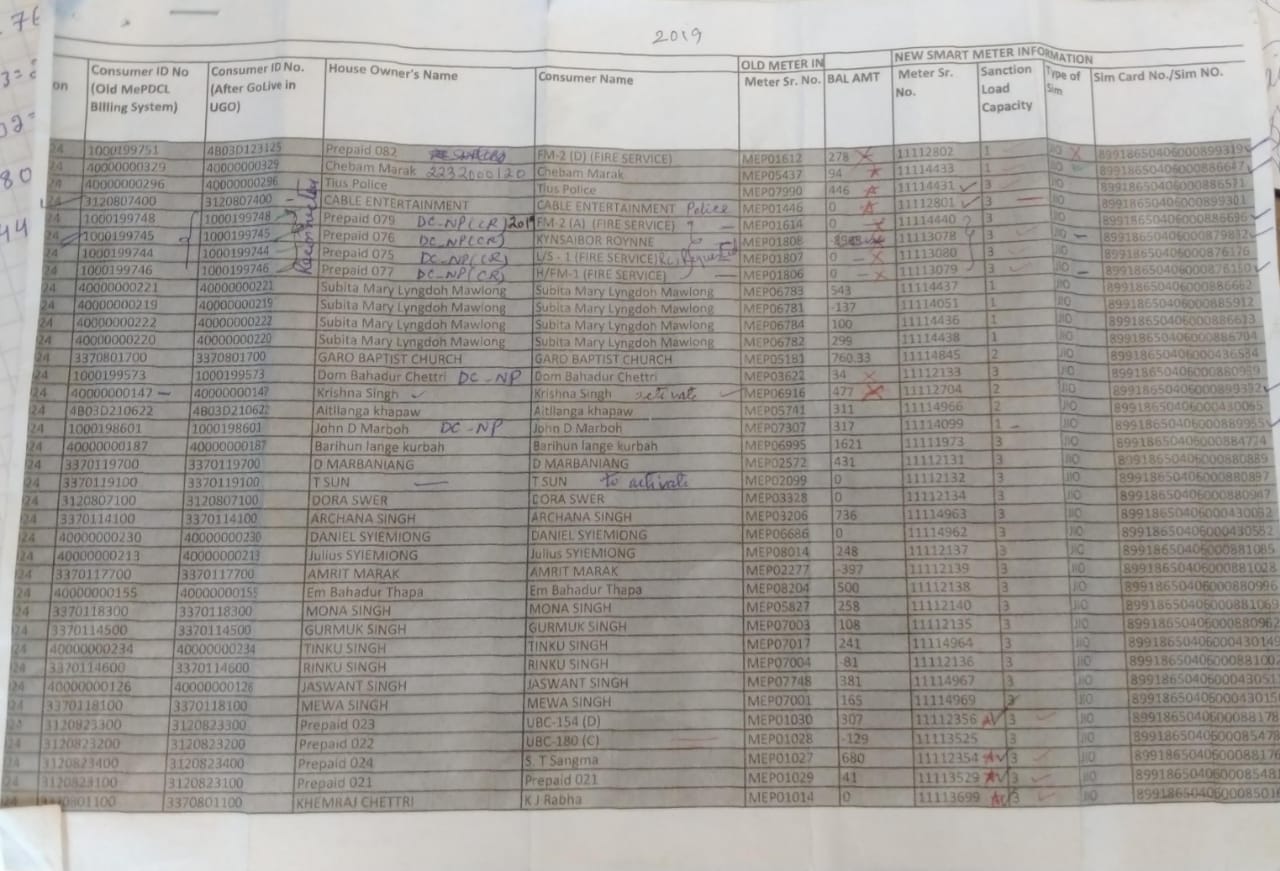 2019
OLD METER IN NEW SMART METER INFORMATION
on Consumer ID No (Old MePDCL Billing System) Consumer ID No. (After GoLive in UGO) House Owner's Name Consumer Name Meter Sr. No. BAL AMT Meter Sr. No. Sanction Load Capacity Type of Sim Sim Card No./Sim NO.
24 1000199751 4B03D123125 Prepaid 082 FM-2 (D) (FIRE SERVICE) MEP01612 278 11112802 1 JIO 8991865040600089931
24 40000000329 40000000329 Chebam Marak 2232000120 Chebam Marak MEP05437 94 11114433 1 JIO
24 40000000296 40000000296 Tius Police Tius Police MEP07990 446 11114431 3 JIO
24 3120807400 3120807400 CABLE ENTERTAINMENT CABLE ENTERTAINMENT Police MEP01446 0 11112801 3 JIO 899186504060008993
24 1000199748 1000199748 Prepaid 079 DC-NP(CR) 2019 FM-2 (A) (FIRE SERVICE) MEP01614 0 11114440 JIO
1000199745 1000199745 Prepaid 076 DC-NP(CR) KYNSAIBOR ROYNNE MEP01808 11113078 JIO
24 1000199744 1000199744 Prepaid 075 DC-NP(CR) L/S - 1 (FIRE SERVICE) MEP01807 0 11113080 JIO 8991865040600087617
24 1000199746 1000199746 Prepaid 077 DC-NP(CR) H/FM-1 (FIRE SERVICE) MEP01806 0 11113079 3 JIO 8991865040600087615
24 40000000221 40000000221 Subita Mary Lyngdoh Mawlong Subita Mary Lyngdoh Mawlong MEP06783 543 11114437 1 JIO 8991865040600088666
24 40000000219 40000000219 Subita Mary Lyngdoh Mawlong Subita Mary Lyngdoh Mawlong MEP06781 -137 11114051 1 JIO 89918650406000885912
24 40000000222 40000000222 Subita Mary Lyngdoh Mawlong Subita Mary Lyngdoh Mawlong MEP06784 100 11114436 1 JIO 89918650406000886613
24 40000000220 40000000220 Subita Mary Lyngdoh Mawlong Subita Mary Lyngdoh Mawlong MEP06782 299 11114438 1 JIO 89918650406000886704
24 3370801700 3370801700 GARO BAPTIST CHURCH GARO BAPTIST CHURCH MEP05181 760.33 11114845 2 JIO 89918650406000436584
24 1000199573 1000199573 Dom Bahadur Chettri DC-NP Dom Bahadur Chettri MEP03622 34 11112133 3 JIO
24 40000000147 40000000147 Krishna Singh Krishna Singh activate MEP06916 477 11112704 2 JIO
24 4B03D210622 4B03D210622 Aitilanga khapaw Aitilanga khapaw MEP05741 311 11114966 2 JIO 89918650406000430065
24 1000198601 1000198601 John D Marboh DC-NP John D Marboh MEP07307 317 11114099 1 JIO 89918650406000889955
24 40000000187 40000000187 Barihun lange kurbah Barihun lange kurbah MEP06995 1621 11111973 3 JIO 89918650406000884774
24 3370119700 3370119700 D MARBANIANG D MARBANIANG MEP02572 431 11112131 3 JIO 89918650406000880889
24 3370119100 3370119100 T SUN T SUN to activate MEP02099 0 11112132 3 JIO 89918650406000880897
24 3120807100 3120807100 DORA SWER DORA SWER MEP03328 0 11112134 3 JIO 89918650406000880947
24 3370114100 3370114100 ARCHANA SINGH ARCHANA SINGH MEP03206 736 11114963 3 JIO
24 40000000230 40000000230 DANIEL SYIEMIONG DANIEL SYIEMIONG MEP06686 0 11114962 3 JIO 89918650406000430582
24 40000000213 40000000213 Julius SYIEMIONG Julius SYIEMIONG MEP08014 248 11112137 3 JIO 89918650406000881085
24 3370117700 3370117700 AMRIT MARAK AMRIT MARAK MEP02277 -397 11112139 3 JIO 89918650406000881028
24 40000000155 40000000155 Em Bahadur Thapa Em Bahadur Thapa MEP08204 500 11112138 3 JIO 89918650406000880996
24 3370118300 3370118300 MONA SINGH MONA SINGH MEP05827 258 11112140 3 JIO 89918650406000881069
24 3370114500 3370114500 GURMUK SINGH GURMUK SINGH MEP07003 108 11112135 3 JIO 89918650406000880962
24 40000000234 40000000234 TINKU SINGH TINKU SINGH MEP07017 241 11114964 3 JIO 8991865040600043014
24 3370114600 3370114600 RINKU SINGH RINKU SINGH MEP07004 -81 11112136 3 JIO 8991865040600088100
24 40000000126 40000000126 JASWANT SINGH JASWANT SINGH MEP07748 381 11114967 3 JIO 8991865040600043051
24 3370118100 3370118100 MEWA SINGH MEWA SINGH MEP07001 165 11114969 3 JIO 8991865040600043015
24 3120823300 3120823300 Prepaid 023 UBC-154 (D) MEP01030 307 11112356 3 JIO 8991865040600088178
24 3120823200 3120823200 Prepaid 022 UBC-180 (C) MEP01028 -129 11113525 3 JIO 8991865040600085478
24 3120823400 3120823400 Prepaid 024 S. T Sangma MEP01027 680 11112354 3 JIO 8991865040600088176
24 3120823100 3120823100 Prepaid 021 Prepaid 021 MEP01029 41 11113529 3 JIO 8991865040600085481
24 3370801100 3370801100 KHEMRAJ CHETTRI K J Rabha MEP01014 0 11113699 3 JIO 8991865040600085016